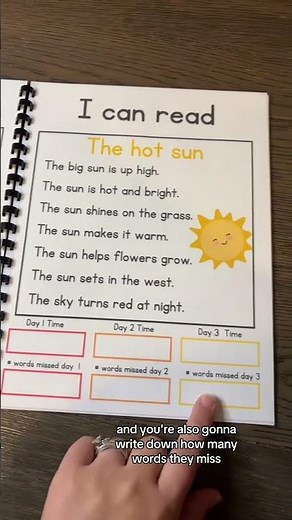 I can read
The hot sun
The big sun is up high.
The sun is hot and bright.
The sun shines on the grass.
The sun makes it warm.
The sun helps flowers grow.
The sun sets in the west.
The sky turns red at night.
Day 1 Time Day 2 Time Day 3 Time
words missed day 1 words missed day 2 words missed day 3
and you're also gonna
write down how many
words they miss